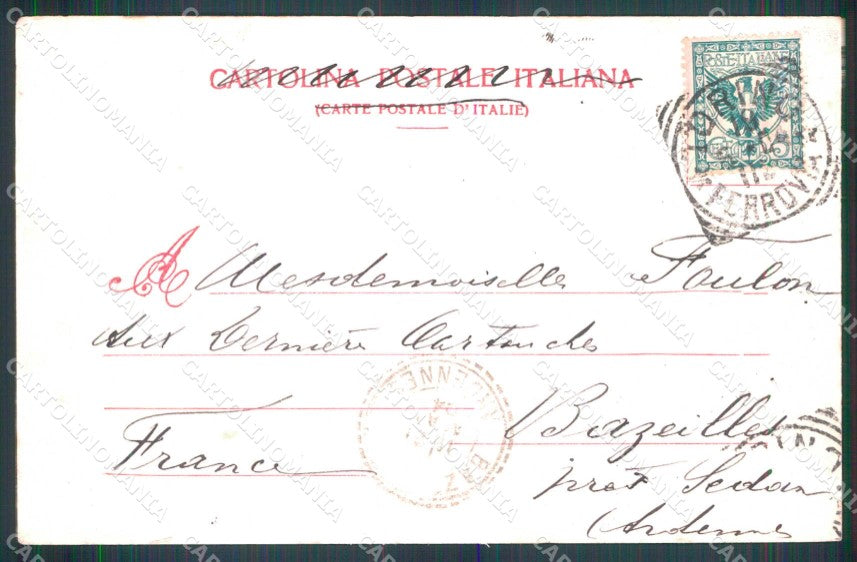 CARTOLINA POSTALE ITALIANA
(CARTE POSTALE D'ITALIE)
R.R.E ITALIANE
5
FERROVIA
A Mesdemoiselles Foulon
Aux Dernière Cartouches
ARDENNES
Bazeilles
France
près Sedan
(Ardennes
CARTOLINOMANIA